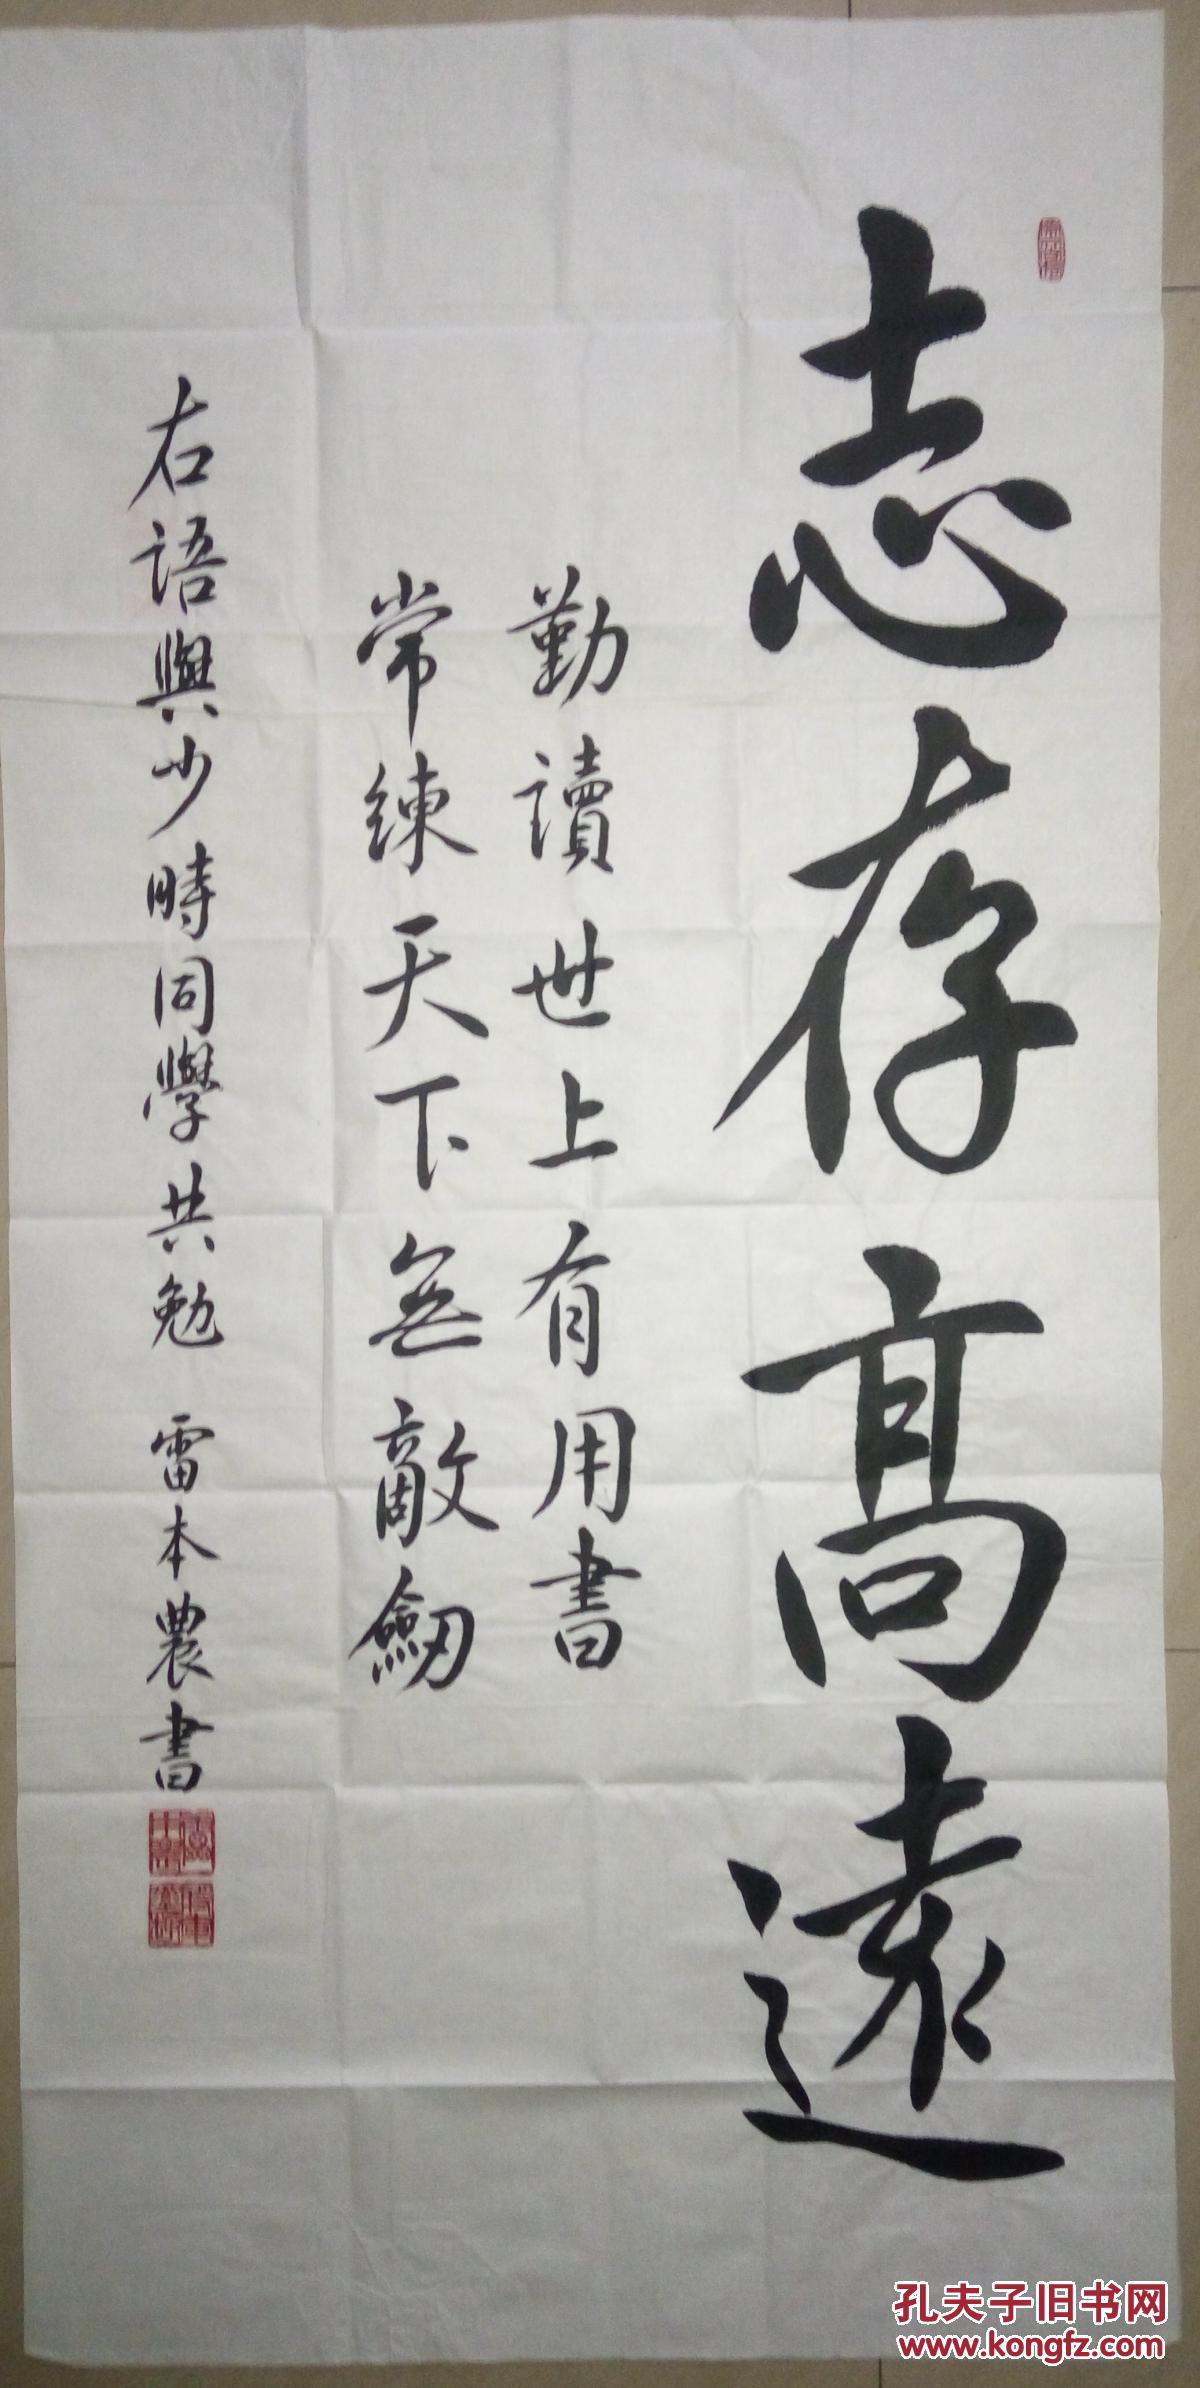 志存高遠
勤讀世上有用書
常練天下無敵劒
右語與少時同學共勉 雷本農書
孔夫子旧书网
www.kongfz.com